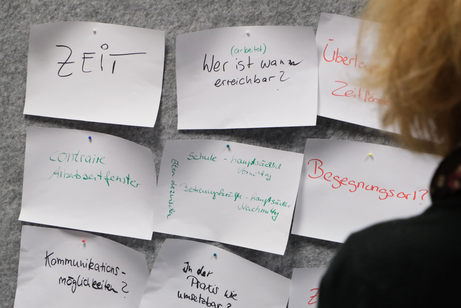 ZEIT
(arbeitet)
Wer ist wann
erreichbar?
Zeitfens
conträre
Arbeitszeitfenster
Schule - hauptsächlich
vormittag
Betreuungskräfte - hauptsächlich
Nachmittag
Begegnungsort?
Kommunikations-
möglichkeiten?
In der
Praxis wie
umsetzbar?